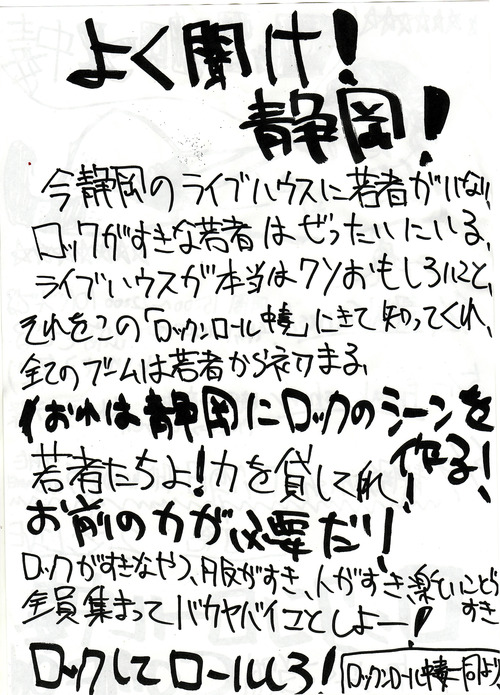 よく聞け!
静岡!
今静岡のライブハウスに若者がいない。
ロックがすきな若者はぜったいにいる。
ライブハウスが本当はクソおもしろいこと、
それをこの「ロックンロール」にきて知ってくれ。
全てのブームは若者から初まる。
おれは静岡にロックのシーンを
作る!
若者たちよ!力を貸してくれ!
お前の力が必要だ!!
ロックがすきなやつ、服がすき、人がすき、楽しいことがすき
全員集まってバカヤバイコとしよー!
ロックしてロールしろ!
ロックンロール一同より